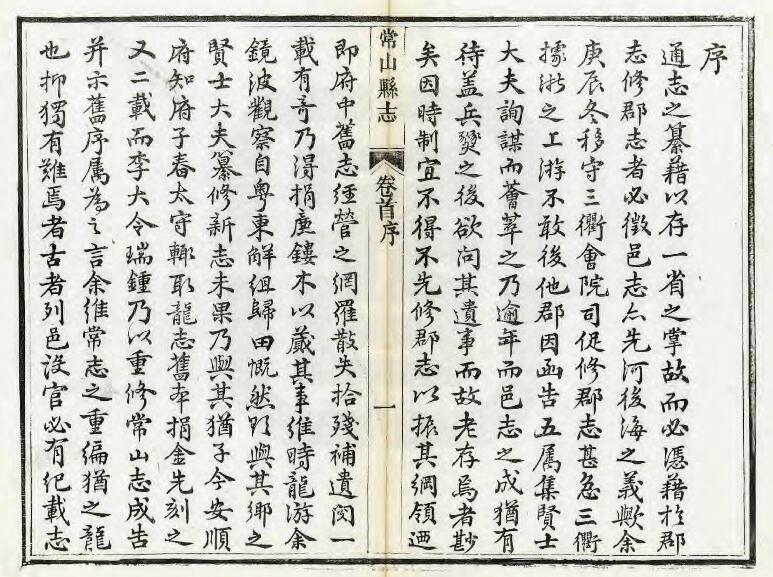 序
通志之纂藉以存一省之掌故而必憑藉於郡
志修郡志者必徵邑志亦先河後海之義歟余
庚辰冬移守三衢會院司促修郡志甚急三衢
據浙之上游不敢後他郡因函告五属集賢士
大夫詢謀而薈萃之乃逾年而邑志之成猶有
待蓋兵燹之後欲問其遺事而故老存焉者尠
矣因時制宜不得不先修郡志以振其綱領迺
常山縣志
卷首序
一
即府中舊志經營之網羅散失拾殘補遺閱一
載有奇乃淂捐廉鏤木以蕆其事維時龍游余
鏡波觀察自粤東解組歸田慨然欲與其鄉之
賢士大夫纂修新志未果乃與其猶子今安順
府知府子春太守輙取龍志舊本捐金先刻之
又二載而李大令瑞鍾乃以重修常山志成告
并示舊序属為之言余維常志之重編猶之龍
也抑獨有難焉者古者列邑設官必有紀載志